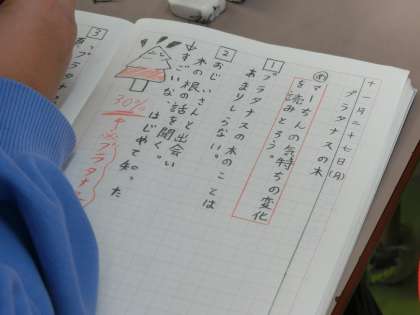 十一月二十七日(月)
プラタナスの木
め
マーちんの気持ちの変化
を読みとろう。
1
プラタナスの木のことは
あまりしらない。
2
おじいさんと出会い
木の根の話を聞く。
すごいな、はじめて知った
30%
3